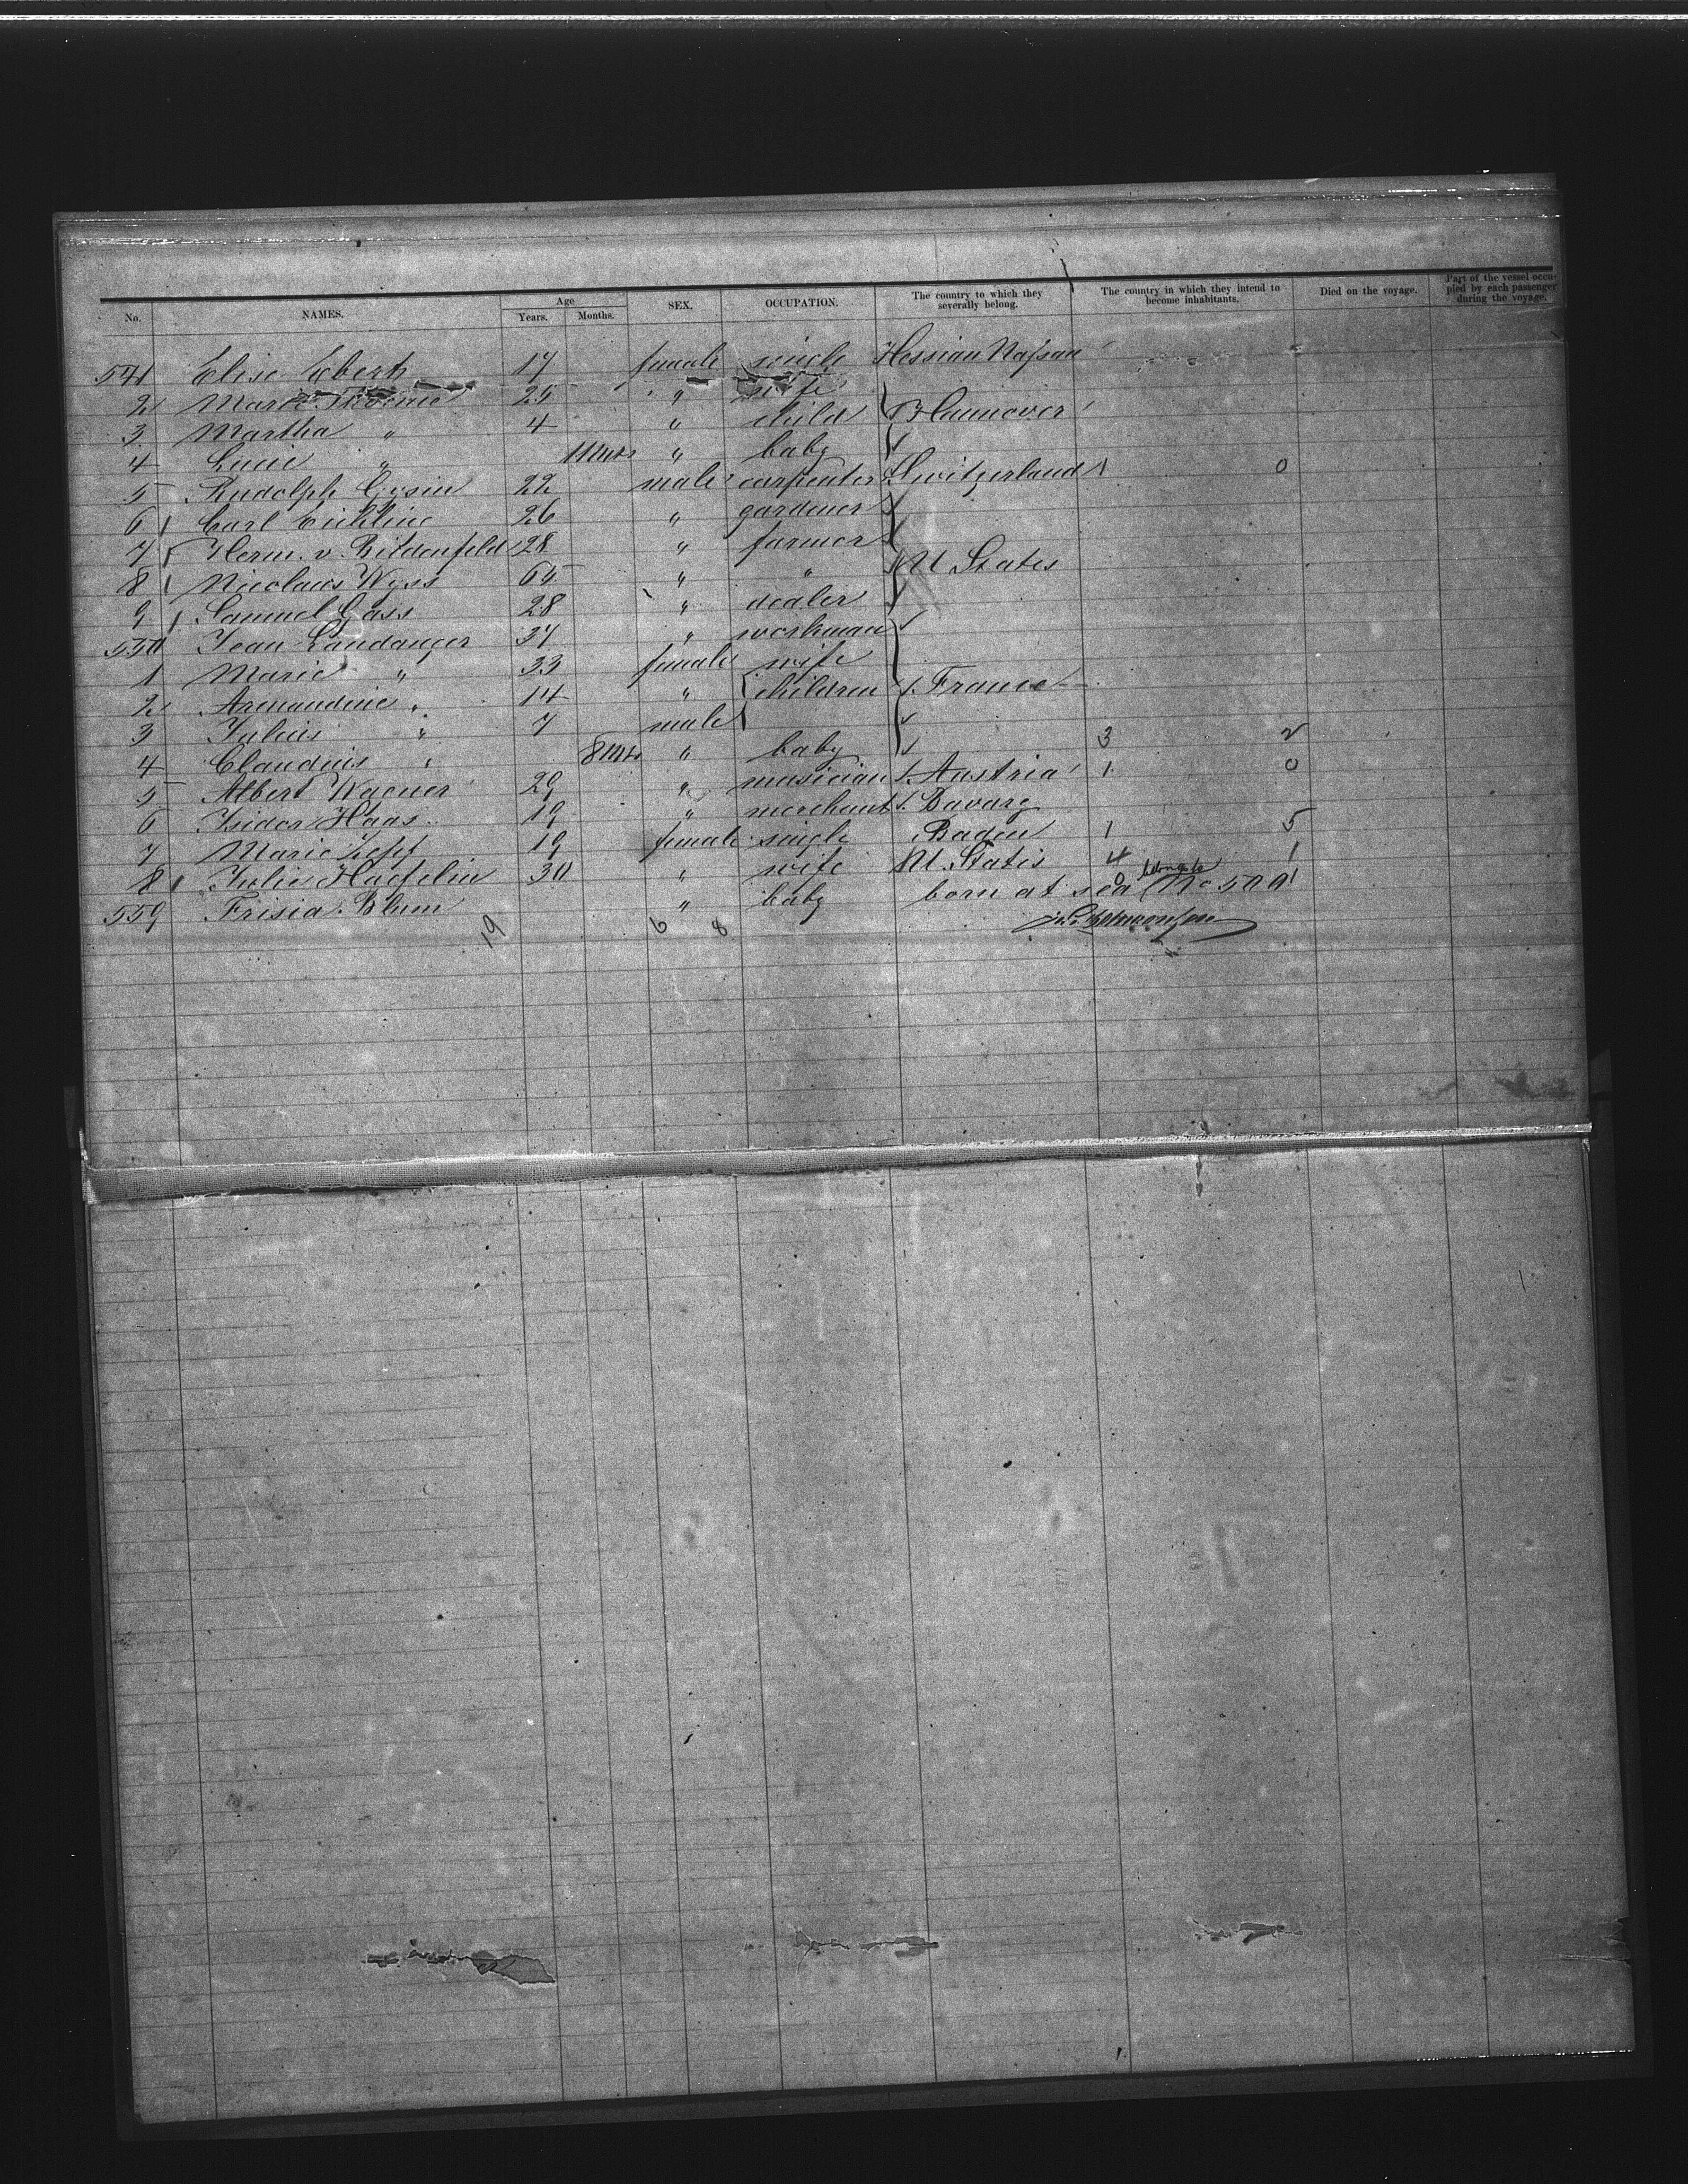 No. NAMES. Age Years. Months. SEX. OCCUPATION. The country to which they severally belong. The country in which they intend to become inhabitants. Died on the voyage. Part of the vessel occupied by each passenger during the voyage.
541 Elise Ebert 17 female single Hessian Nassau
2 Marie Thoeme 25 " wife
3 Martha " 4 " child Hannover
4 Lucie " 11 Mts " baby
5 Rudolph Gysin 22 male carpenter Switzerland 1 0
6 Carl Eichline 26 " gardener
7 Herm. v. Bildenfeld 28 " farmer
8 Nicolaus Wyss 65 " " U States
9 Samuel Gass 28 " dealer
550 Jean Landanger 37 " workman
1 Marie " 33 female wife
2 Armandine " 14 " children France
3 Julius " 7 male
4 Claudius " 8 Mts " baby 3 2
5 Albert Wagner 29 " musician Austria 1 0
6 Isidor Haas 19 " merchant Bavarg
7 Marie Zepf 19 female single Baden 1 5
8 Julie Haefelin 30 " wife U. States 4 1
559 Frisia Blum " baby born at sea belongs to No 500
19 6 8